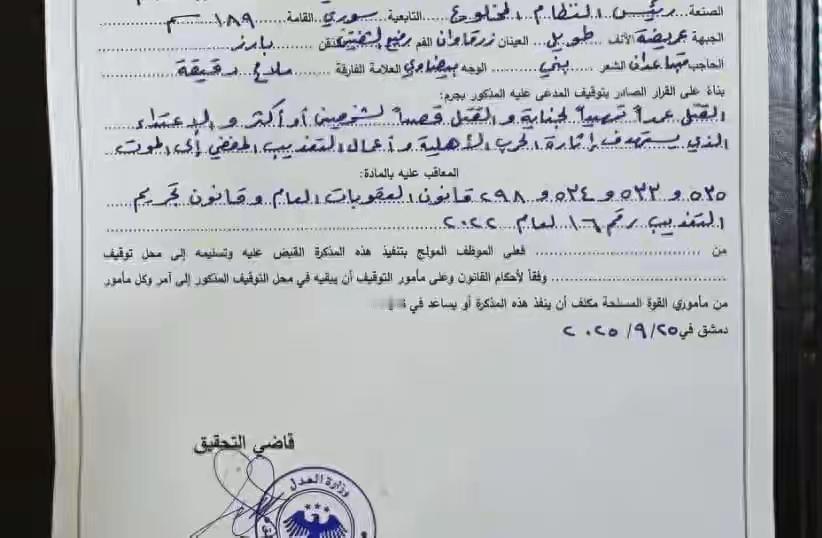 الصنعة... رئيس النظام المخلوع... التابعية سوري... القامة ١٨٩ سم
الجبهة عريضة الأنف طويل العينان زرقاوان الفم رفيع الشفتين الذقن بارز
الحاجب الشعر بني الوجه بيضاوي العلامة الفارقة ملامح دقيقة
بناءً على القرار الصادر بتوقيف المدعى عليه المذكور بجرم:
القتل عمداً تمهيداً لجناية والقتل قصداً لشخصين أو أكثر والاعتداء
الذي يستهدف إثارة الحرب الأهلية وأعمال التعذيب المفضي إلى الموت
المعاقب عليه بالمادة:
٥٣٥ و ٥٣٣ و ٥٣٤ و ٢٩٨ قانون العقوبات العام وقانون تجريم
التعذيب رقم ١٦ لعام ٢٠٢٢
من ........ فعلى الموظف المولج بتنفيذ هذه المذكرة القبض عليه وتسليمه إلى محل توقيف
........ وفقاً لأحكام القانون وعلى مأمور التوقيف أن يبقيه في محل التوقيف المذكور إلى آمر وكل مأمور
من مأموري القوة المسلحة مكلف أن ينفذ هذه المذكرة أو يساعد في
دمشق في ٢٠٢٥/٩/٢٥
قاضي التحقيق
وزارة العدل